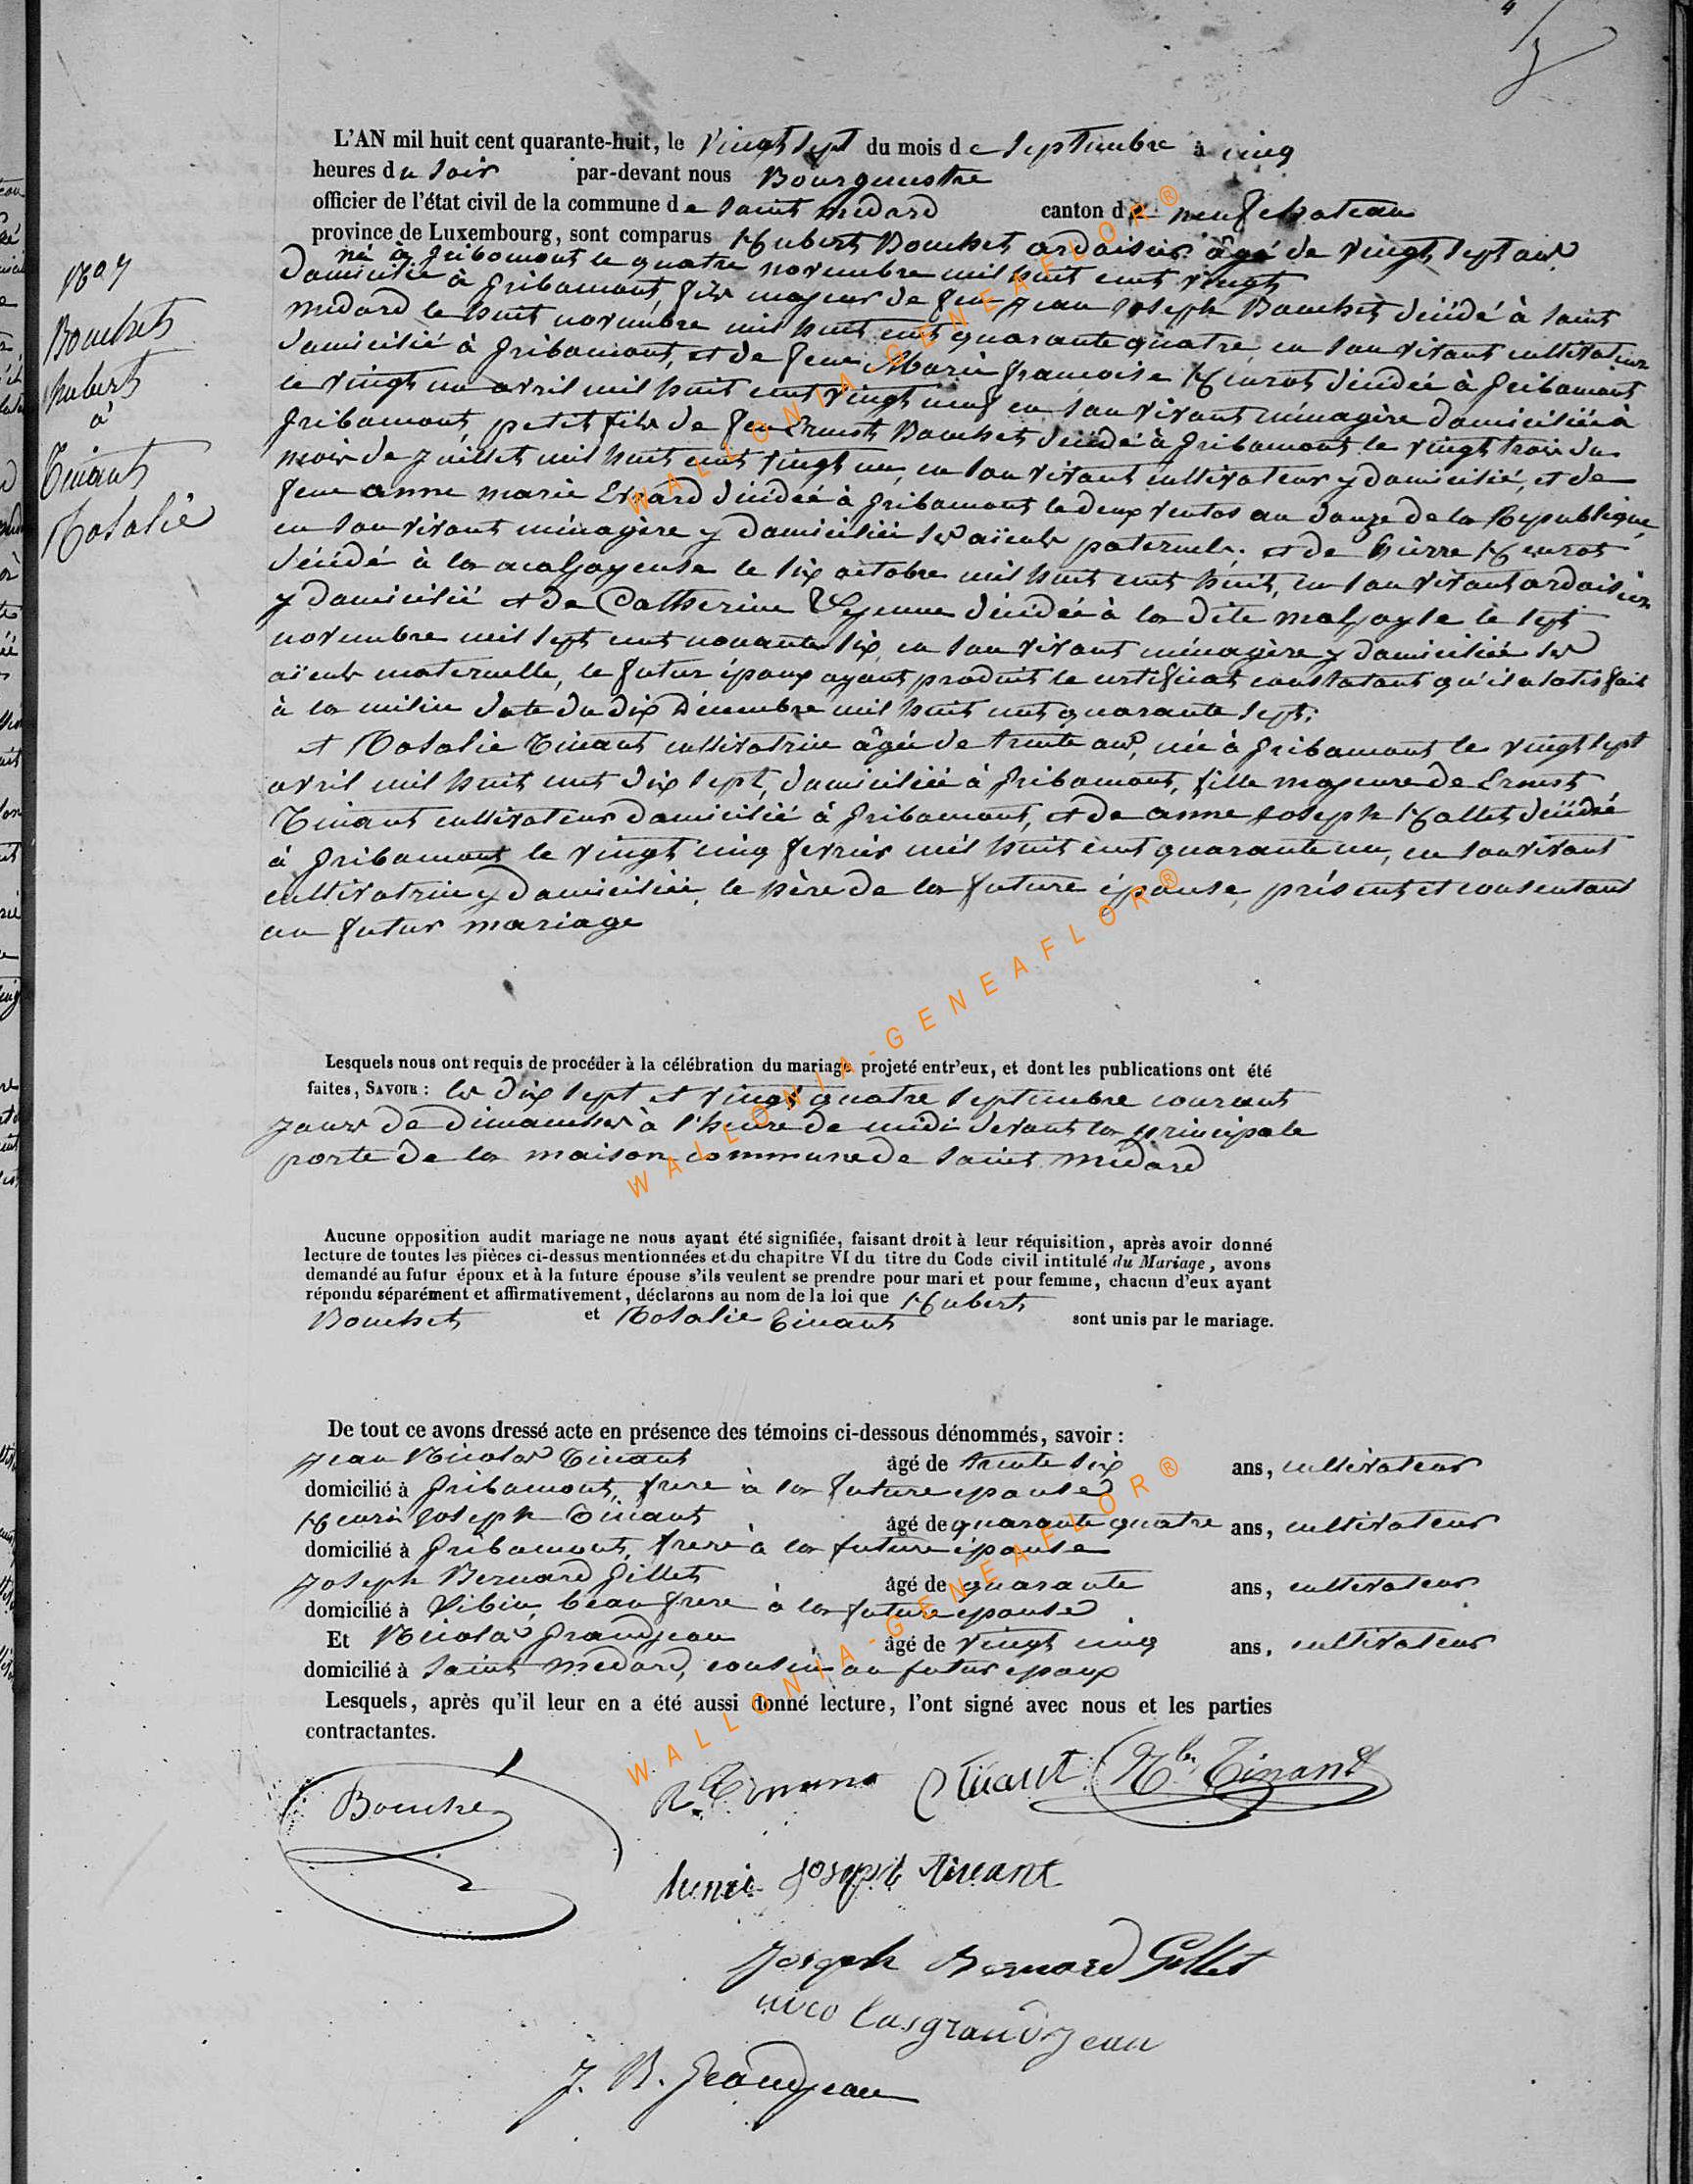 4
3
L'AN mil huit cent quarante-huit, le vingt sept du mois de septembre à cinq
heures du soir par-devant nous Bourgmestre
officier de l'état civil de la commune de saint médard canton de neufchateau
province de Luxembourg, sont comparus Hubert Bouchet ardoisier âgé de vingt sept ans
né à gribomont le quatre novembre mil huit cent vingt
domicilié à gribomont, fils majeur de feu jean joseph Bouchet décédé à saint
médard le huit novembre mil huit cent quarante quatre, en son vivant cultivateur
domicilié à gribomont, et de feue Marie françoise Henrot décédée à gribomont
le vingt un avril mil huit cent vingt neuf en son vivant ménagère domiciliée à
gribomont, petit fils de feu Ernest Bouchet décédé à gribomont le vingt trois du
mois de juillet mil huit cent vingt un, en son vivant cultivateur y domicilié, et de
feue anne marie Evrard décédée à gribomont le deux ventos an douze de la République,
en son vivant ménagère y domiciliée ses aïeuls paternels; et de pierre Henrot
décédé à la le six octobre mil huit cent huit, en son vivant ardoisier
y domicilié et de Catherine Lejeune décédée à la dite le sept
novembre mil sept cent nonante six, en son vivant ménagère y domiciliée ses
aïeuls maternelle, le futur époux ayant produit le certificat constatant qu'il a satisfait
à la milice date du dix Décembre mil huit cent quarante sept;
et Rosalie Tinant cultivatrice âgée de trente ans, née à gribomont le vingt sept
avril mil huit cent dix sept, domiciliée à gribomont, fille majeure de Ernest
Tinant cultivateur domicilié à gribomont, et de anne joseph Hallet décédée
à gribomont le vingt cinq fevrier mil huit cent quarante un, en son vivant
cultivatrice y domiciliée, le père de la future épouse, présent et consentant
au futur mariage
No 7
Bouchet
hubert
à
Tinant
Rosalie
Lesquels nous ont requis de procéder à la célébration du mariage projeté entr'eux, et dont les publications ont été
faites, SAVOIR : les dix sept et vingt quatre septembre courant
jours de dimanches à l'heure de midi devant la principale
porte de la maison commune de saint médard
Aucune opposition audit mariage ne nous ayant été signifiée, faisant droit à leur réquisition, après avoir donné
lecture de toutes les pièces ci-dessus mentionnées et du chapitre VI du titre du Code civil intitulé du Mariage, avons
demandé au futur époux et à la future épouse s'ils veulent se prendre pour mari et pour femme, chacun d'eux ayant
répondu séparément et affirmativement, déclarons au nom de la loi que Hubert
Bouchet et Rosalie Tinant sont unis par le mariage.
De tout ce avons dressé acte en présence des témoins ci-dessous dénommés, savoir :
jean Nicolas Tinant âgé de trente six ans, cultivateur
domicilié à gribomont, frere à la future epouse
Henri joseph Tinant âgé de quarante quatre ans, cultivateur
domicilié à gribomont, frere à la future épouse
joseph Bernard gillet âgé de quarante ans, cultivateur
domicilié à Vibin, beau frere à la future épouse
Et Nicolas grandjean âgé de vingt cinq ans, cultivateur
domicilié à saint médard, cousin au futur epoux
Lesquels, après qu'il leur en a été aussi donné lecture, l'ont signé avec nous et les parties
contractantes.
Bouchet
Tinant
Tinant
henri joseph tinant
joseph Bernard Gillet
nicolas grandjean
J. B. Grandjean
WALLONIA-GENEAFLOR®
WALLONIA-GENEAFLOR®
WALLONIA-GENEAFLOR®